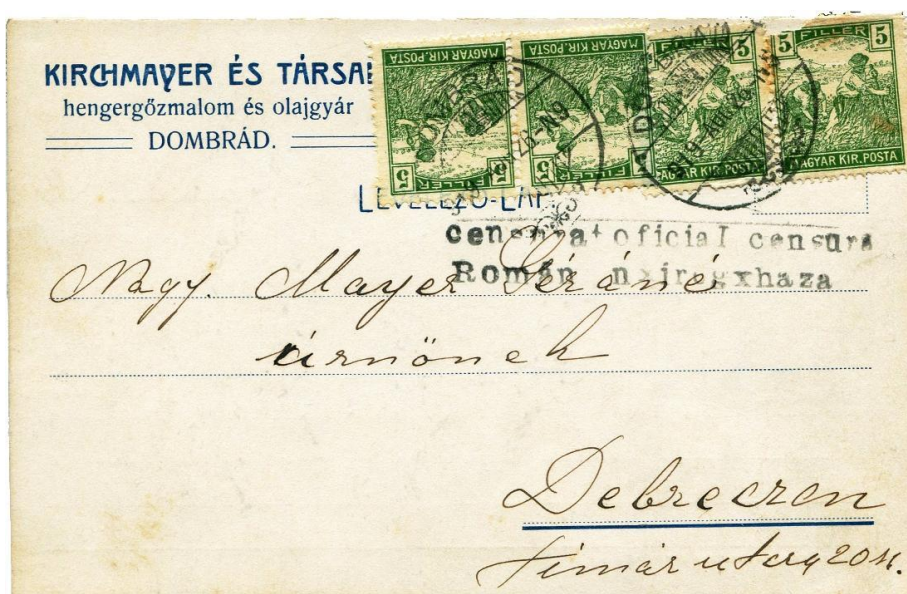 KIRCHMAYER ÉS TÁRSAI
hengergőzmalom és olajgyár
DOMBRÁD.
5 FILLER 5
MAGYAR KIR. POSTA
5 FILLER 5
MAGYAR KIR. POSTA
FILLER 5
MAGYAR KIR. POSTA
5 FILLER 5
MAGYAR KIR. POSTA
DOMBRÁD
LEVELEZŐ-LAP
cenzurat oficial censura
Român
Nagy. Mayer
úrnőnek
Debreczen
Timár utcza 20 sz.